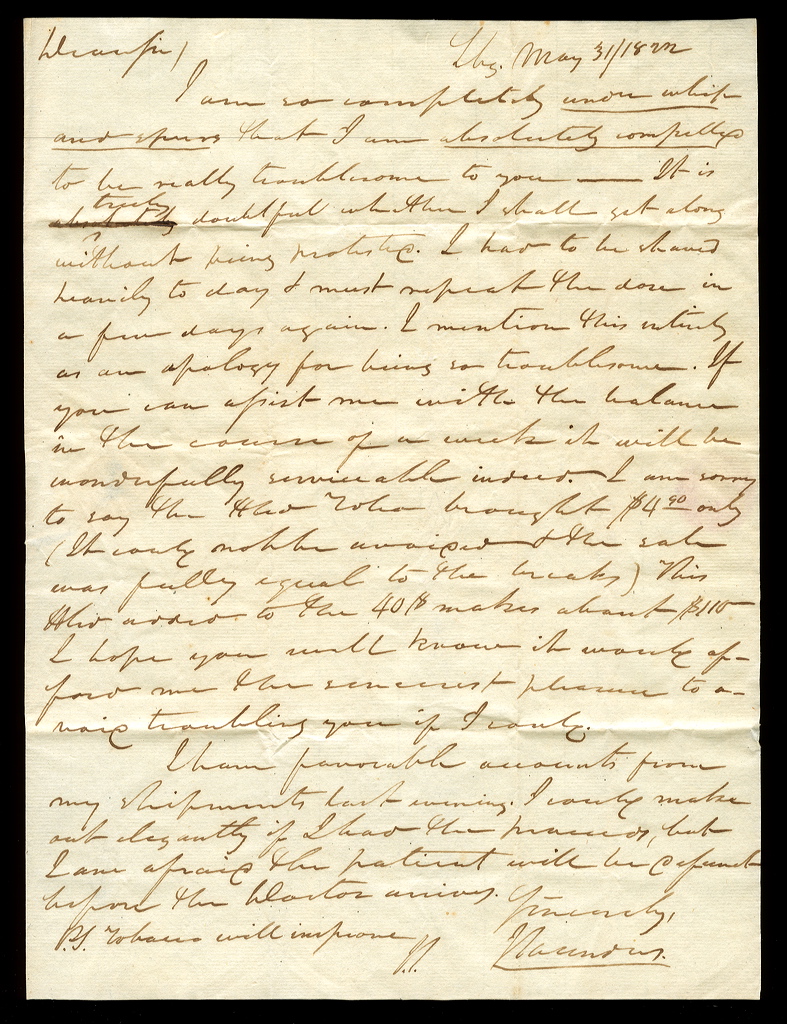 Dear Sir, Lbg. May 31/1822
I am so completely under whip
and spur that I am absolutely compelled
to be really troublesome to you — It is
truly
doubtful whether I shall get along
without being protested. I had to be shaved
heavily to day & must repeat the dose in
a few days again. I mention this entirely
as an apology for being so troublesome. If
you can assist me with the balance
in the course of a week it will be
wonderfully serviceable indeed. I am sorry
to say the Hhd Tobo brought $4 90 only
(It could not be avoided & the sale
was fully equal to the breaks) This
Hhd added to the 40$ makes about $110
I hope you will know it would af-
ford me the sincerest pleasure to a-
void troubling you if I could.
I have favorable accounts from
my shipments last evening. I could make
out elegantly if I had the proceeds, but
I am afraid the patient will be defunct
before the Doctor arrives.
Sincerely,
P.S. Tobacco will improve